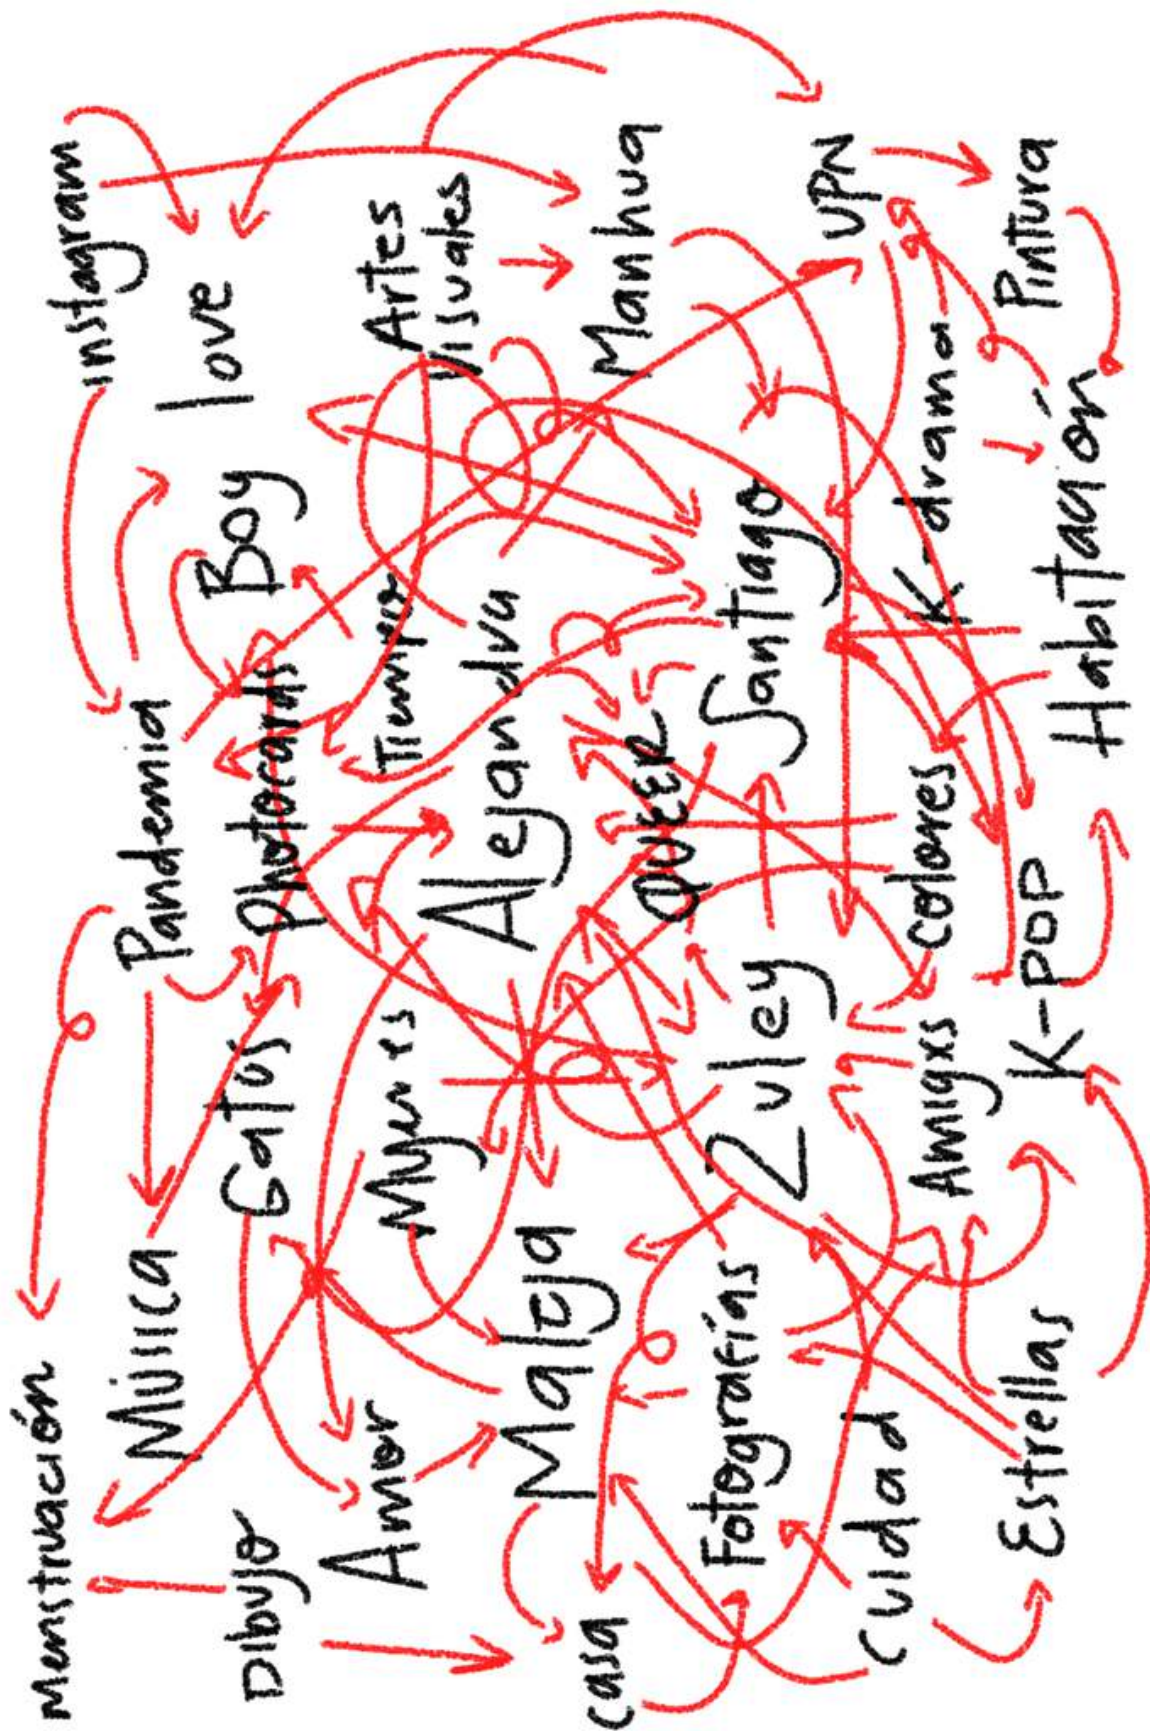 Menstruación
instagram
Música
Pandemia
love
Dibujo
Gatos
Photocards
Boy
Amor
Mujeres
Tiempo
Artes
Visuales
Maleja
Alejandra
casa
Manhua
QUEER
Fotografías
Zuley
Santiago
UPN
Cuidad
Amigxs
colores
K-drama
Estrellas
K-POP
Habitación
Pintura